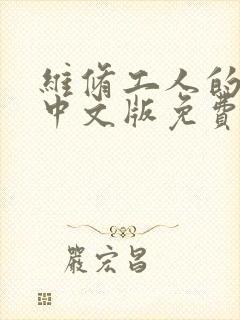 維脩工人的
中文版免費
嚴宏昌